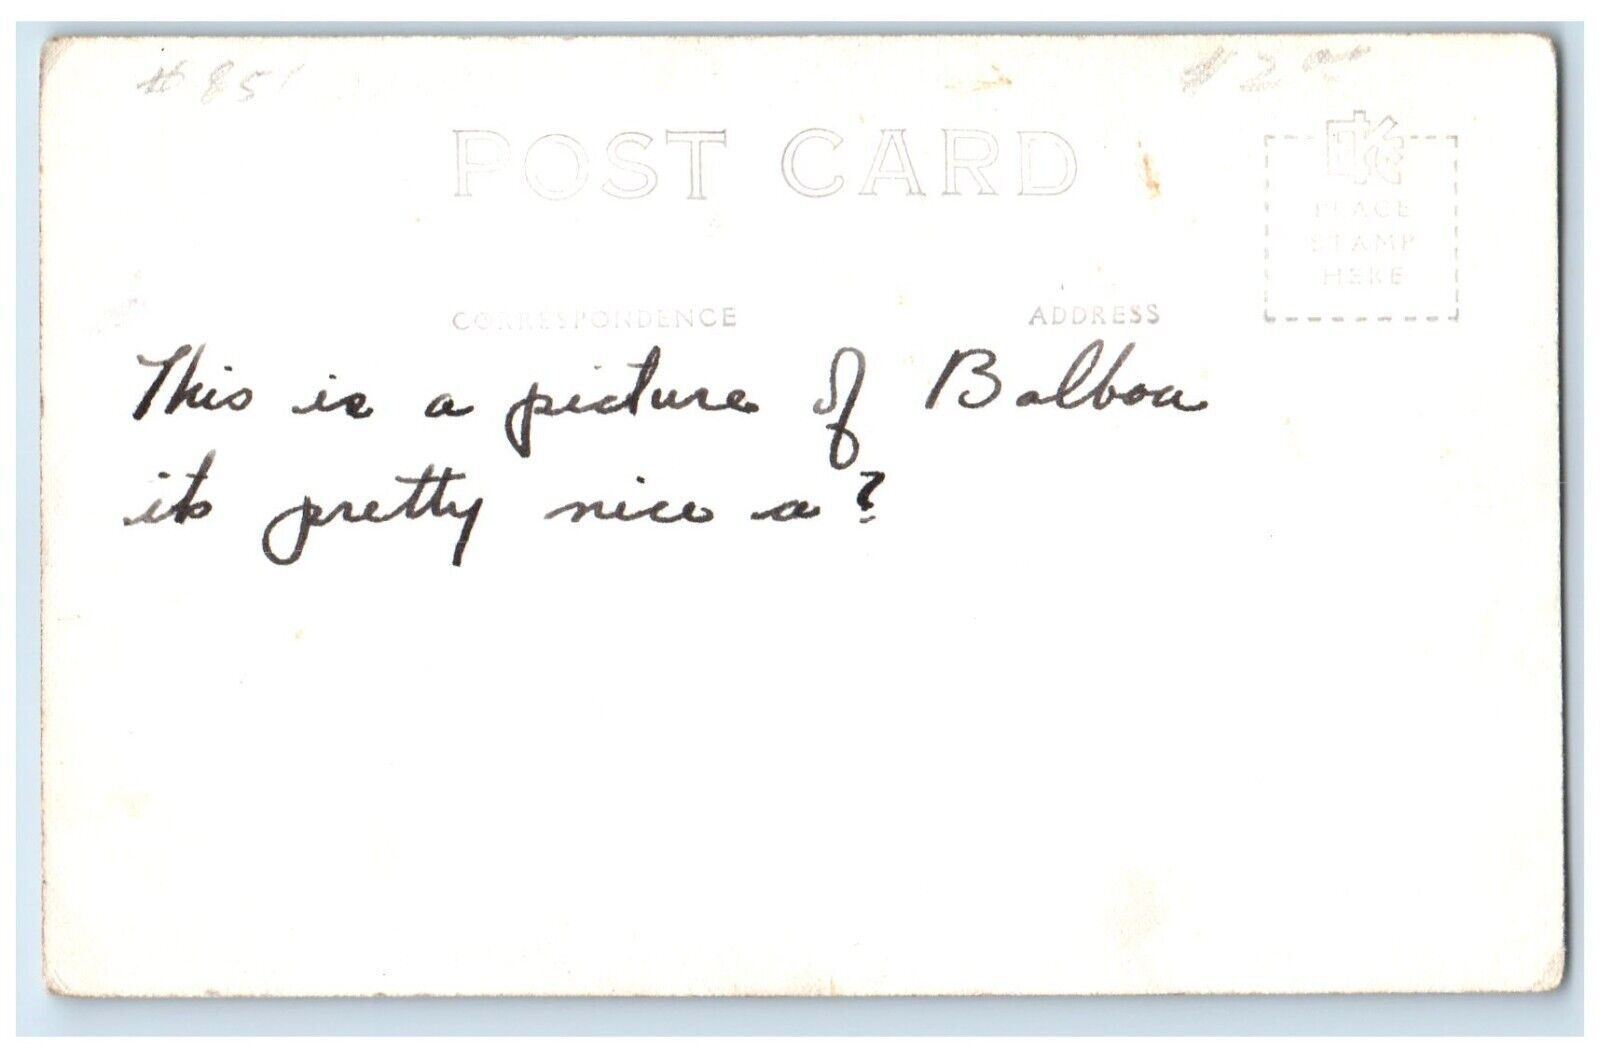 #851 $2.00
POST CARD
PLACE
STAMP
HERE
CORRESPONDENCE ADDRESS
This is a picture of Balboa
its pretty nice a?